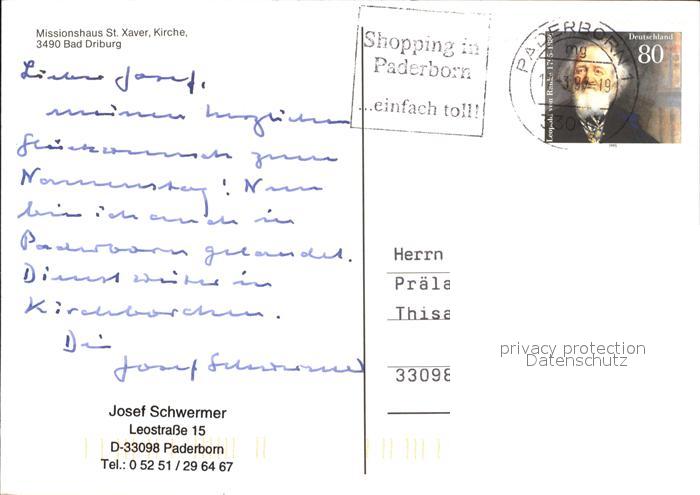 Missionshaus St. Xaver, Kirche,
3490 Bad Driburg
Lieber Josef,
meinen herzlichen
Glückwunsch zum
Namenstag! Nun
bin ich auch in
Paderborn gelandet.
Dienst weiter in
Kirchborchen.
Dein
Josef Schwermer
Josef Schwermer
Leostraße 15
D-33098 Paderborn
Tel.: 0 52 51 / 29 64 67
Shopping in
Paderborn
...einfach toll!
PADERBORN 1
mg
330
Deutschland
80
Leopold von Ranke 1795-1886
1995
Herrn
Präla
Thisa
33098
privacy protection
Datenschutz